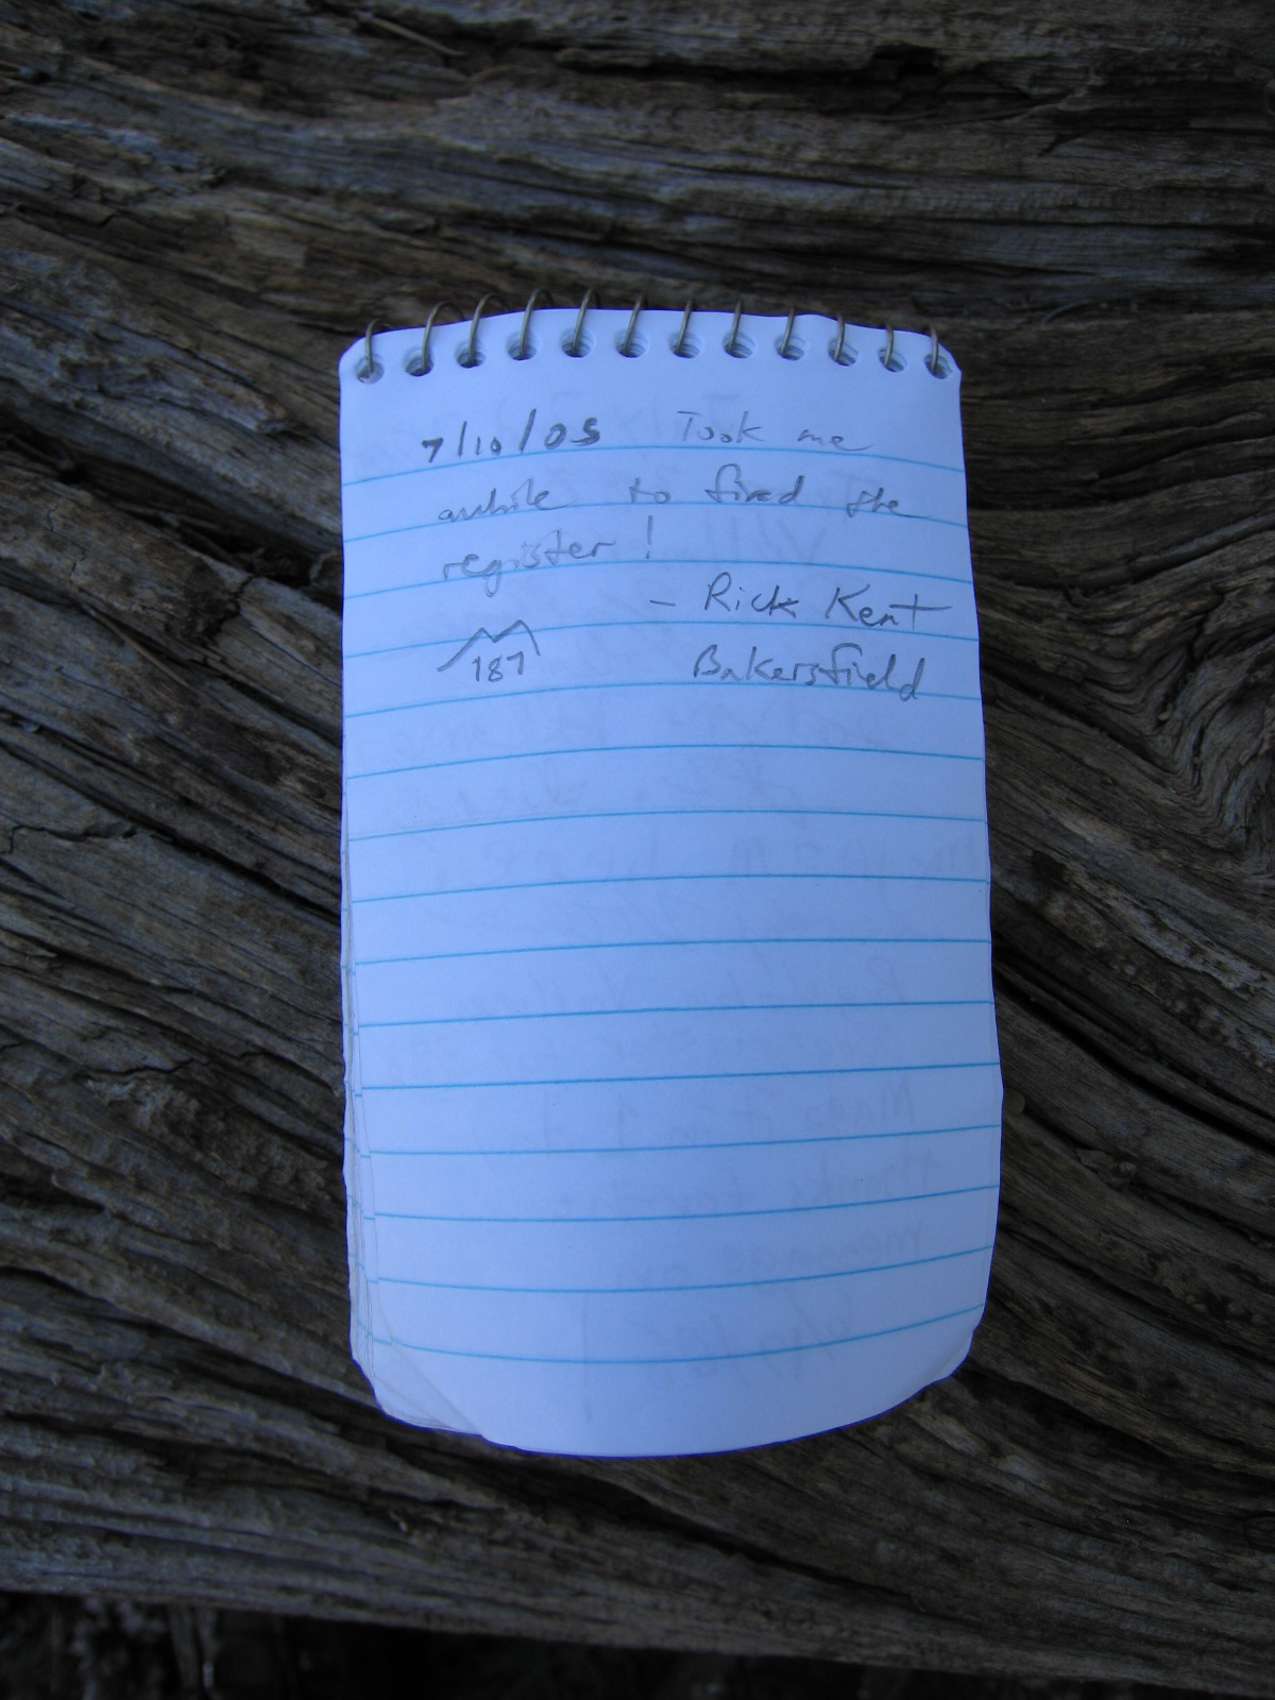 7/10/05 Took me
awhile to find the
register!
- Rick Kent
187 Bakersfield